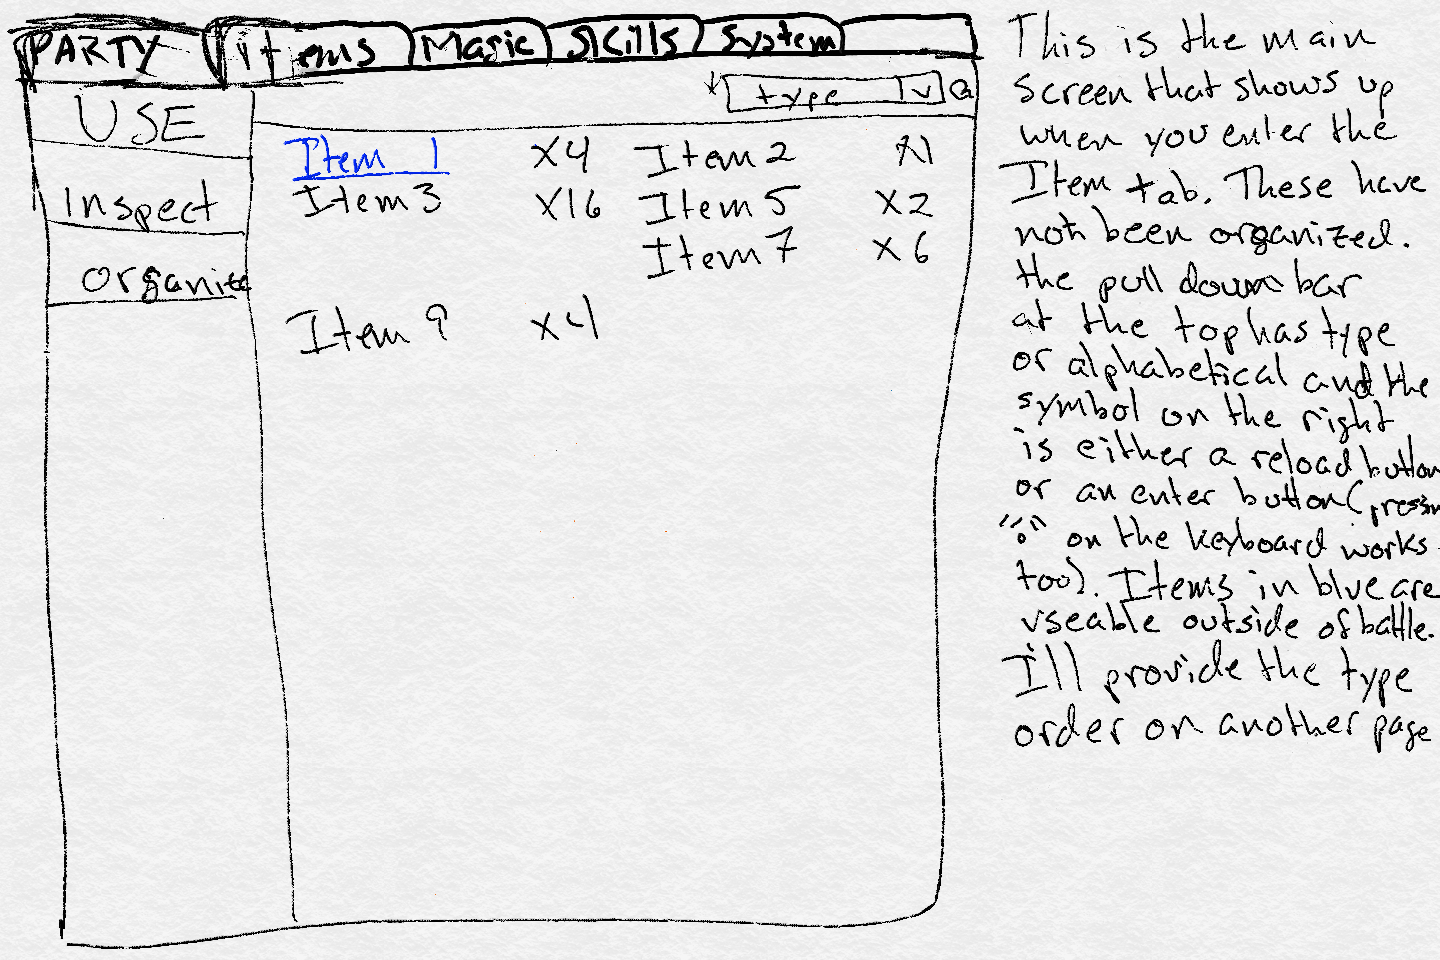 PARTY items Magic Skills System
type
USE
Inspect
organize
Item 1 X4 Item 2 X1
Item 3 X16 Item 5 X2
Item 7 X6
Item 9 X4
This is the main
screen that shows up
when you enter the
Item tab. These have
not been organized.
the pull down bar
at the top has type
or alphabetical and the
symbol on the right
is either a reload button
or an enter button (pressin
on the keyboard works
too). Items in blue are
useable outside of battle.
I'll provide the type
order on another page